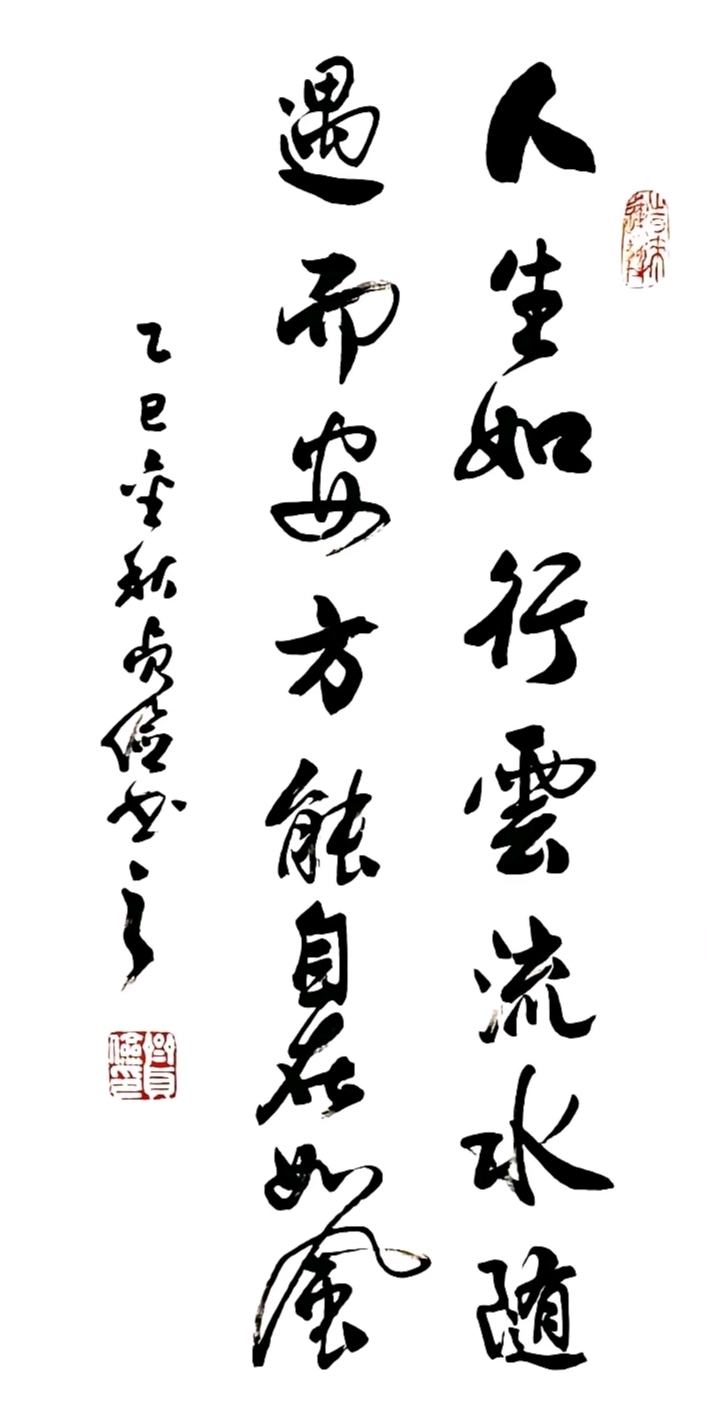 人生如行雲流水随
遇而安方能自在如風
乙巳金秋贞俭书之